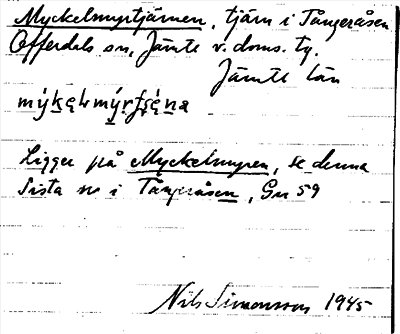 Myckelmyrtjärnen, tjärn i Tångeråsen
Offerdals sn, Jämtl v. doms. tg.
Jämtl län
Ligger på Myckelmyren, se denna
Sista nr i Tångeråsen, Gu 59
Nils Simonsson 1945